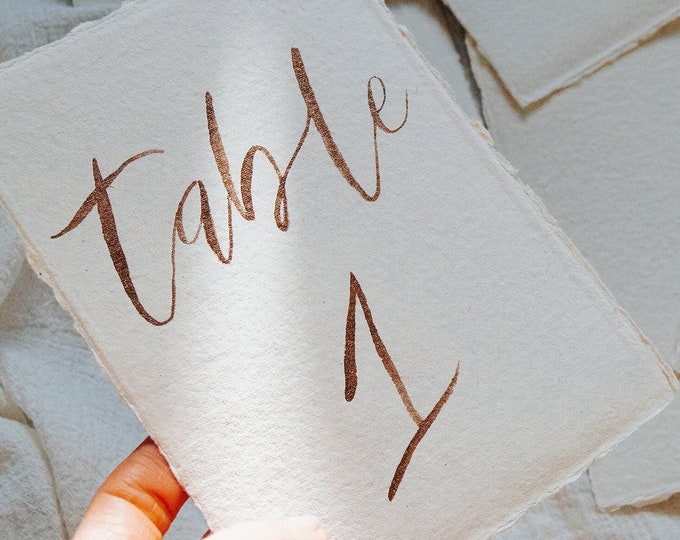 table
1